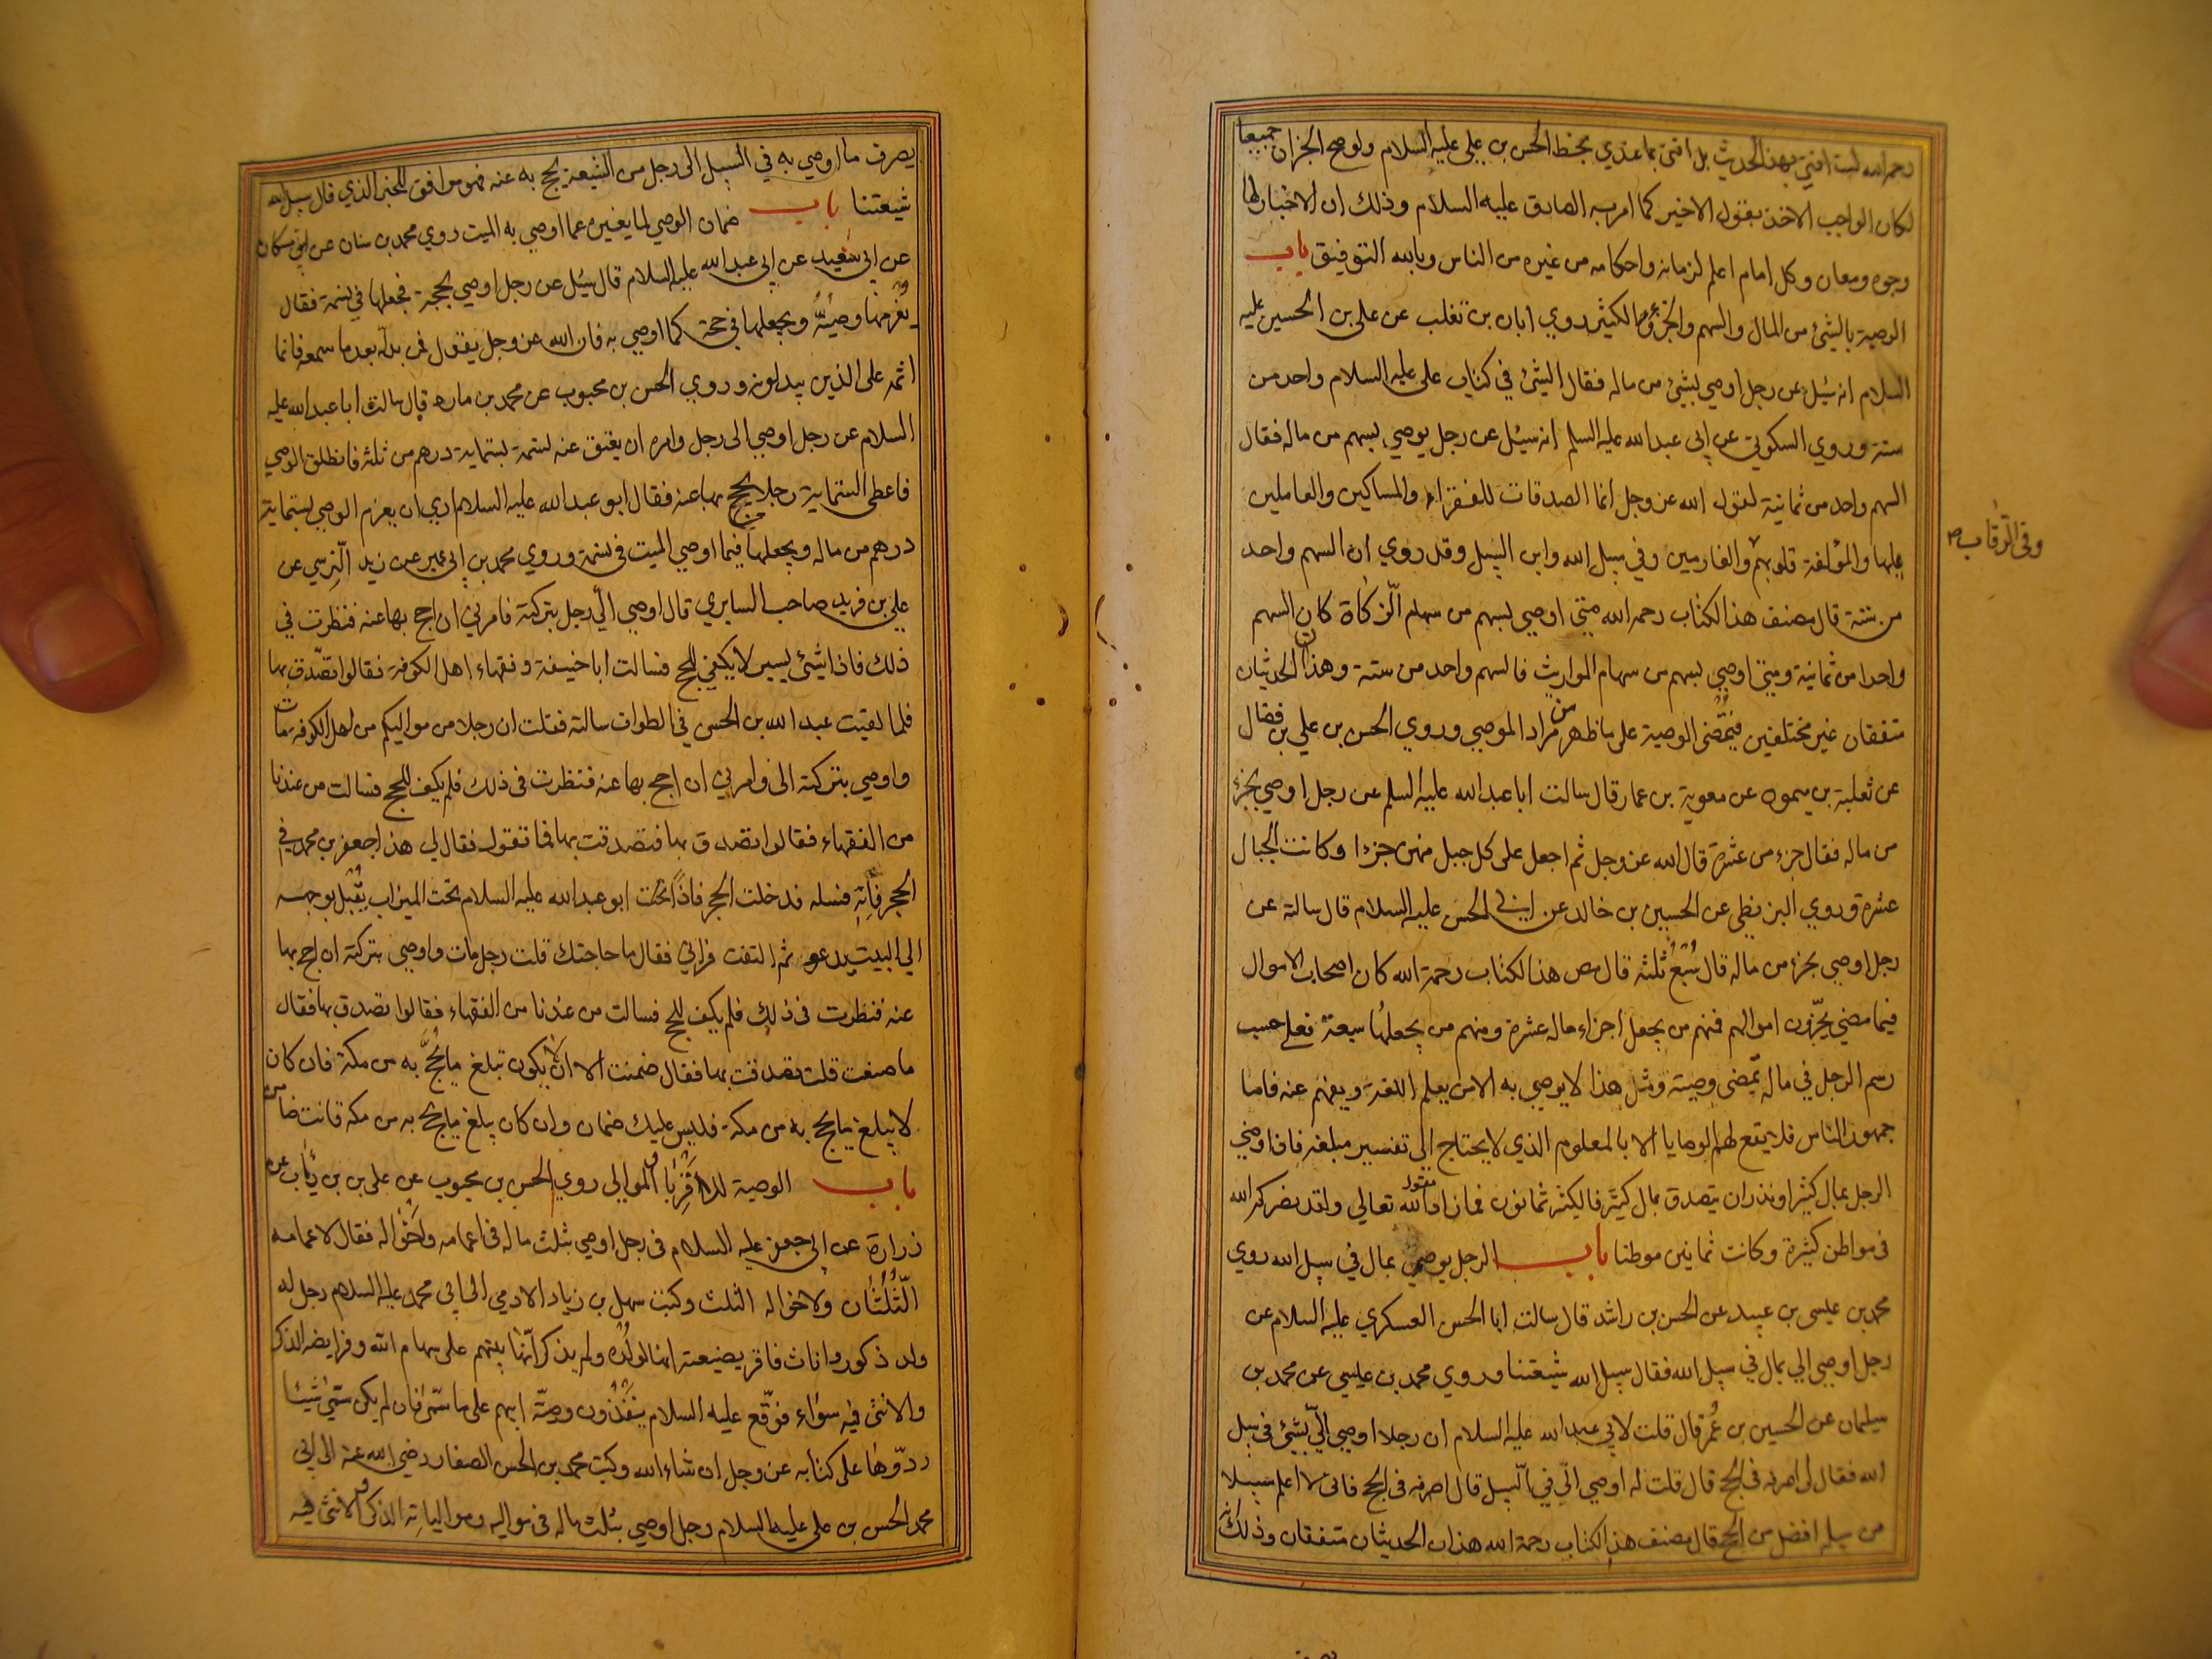 رحمه الله لست افتي بهذا الحديث بل افتي بما عندي بخط الحسن بن علي عليه السلام ولو صح الخبران جميعا
لكان الواجب الاخذ بقول الاخير كما امر به الصادق عليه السلام وذلك ان الاخبار لها
وجوه ومعان وكل امام اعلم لزمانه واحكامه من غيره من الناس وبالله التوفيق باب
الوصية بالشئ من المال والسهم والجزء والكثير روي ابان بن تغلب عن علي بن الحسين عليه
السلام انه سئل عن رجل اوصي بشئ من ماله فقال الشئ في كتاب علي عليه السلام واحد من
ستة وروي السكوني عن ابي عبد الله عليه السلم انه سئل عن رجل يوصي بسهم من ماله فقال
السهم واحد من ثمانية لقول الله عز وجل انما الصدقات للفقراء والمساكين والعاملين
عليها والمؤلفة قلوبهم والغارمين وفي سبيل الله وابن السبيل وقد روي ان السهم واحد
وفي الرقاب
من ستة قال مصنف هذا الكتاب رحمه الله متي اوصي بسهم من سهام الزكاة كان السهم
واحدا من ثمانية ومتي اوصي بسهم من سهام المواريث فالسهم واحد من ستة وهذان الحديثان
متفقان غير مختلفين فتمضي الوصية علي ما ظهر من مراد الموصي وروي الحسن بن علي بن فضال
عن ثعلبة بن ميمون عن معوية بن عمار قال سالت ابا عبد الله عليه السلم عن رجل اوصي بجزء
من ماله فقال جزء من عشرة قال الله عز وجل ثم اجعل علي كل جبل منهن جزءا وكانت الجبال
عشرة وروي البزنطي عن الحسين بن خالد عن ابي الحسن عليه السلام قال سالته عن
رجل اوصي بجزء من ماله قال سبع ثلثه قال مص هذا لكتاب رحمة الله كان اصحاب الاموال
فيما مضي يجزّون اموالهم فمنهم من يجعل اجزاء ماله عشرة ومنهم من يجعلها سبعة فعلي حسب
رسم الرجل في ماله تمضي وصيته ومثل هذا لا يوصي به الا من يعلم اللغة ويفهم عنه فاما
جمهور الناس فلا يقع لهم الوصايا الا بالمعلوم الذي لا يحتاج الي تفسير مبلغه فاذا اوصي
الرجل بمال كثير او نذر ان يتصدق بمال كثير فالكثير ثمانون فما زاد لقول الله تعالي ولقد نصركم الله
في مواطن كثيرة وكانت ثمانين موطنا باب الرجل يوصي بمال في سبيل الله روي
محمد بن عيسي بن عبيد عن الحسن بن راشد قال سالت ابا الحسن العسكري عليه السلام عن
رجل اوصي الي بمال في سبيل الله فقال سبيل الله شيعتنا وروي محمد بن عيسي عن محمد بن
سليمان عن الحسين بن عُمر قال قلت لابي عبد الله عليه السلام ان رجلا اوصي اليّ بشئ في سبيل
الله فقال لي اصرفه في الحج قال قلت له اوصي اليّ في السبيل قال اصرفه في الحج فاني لا اعلم سبيلا
من سبله افضل من الحج قال مصنف هذا الكتاب رحمة الله هذان الحديثان متفقان وذلك انه
يصرف ما اوصي به في السبيل الي رجل من الشيعة يحج به عنه فهو موافق للخبر الذي قال سبيل الله
شيعتنا باب ضمان الوصي لما يغيره عما اوصي به الميت روي محمد بن سنان عن ابن مسكان
عن ابي سعيد عن ابي عبد الله عليه السلام قال سئل عن رجل اوصي بحجة فجعلها في نسمة فقال
يُغرمها وصيُّه ويجعلها في حجة كما اوصي به فان الله عز وجل يقول فمن بدله بعد ما سمعه فانما
اثمه علي الذين يبدلونه وروي الحسن بن محبوب عن محمد بن مارد قال سالت ابا عبد الله عليه
السلام عن رجل اوصي الي رجل وامره ان يعتق عنه نسمة بستماية درهم من ثلثه فانطلق الوصي
فاعطي الستماية رجلا يحج بها عنه فقال ابو عبد الله عليه السلام اري ان يغرم الوصي ستماية
درهم من ماله ويجعلها فيما اوصي الميت في نسمة وروي محمد بن ابي عمير عن زيد النرسي عن
علي بن فريد صاحب السابري قال اوصي اليّ رجل بتركته فامرني ان احج بها عنه فنظرت في
ذلك فاذا شئ يسير لا يكفي للحج فسالت ابا حنيفة وفقهاء اهل الكوفة فقالوا تصدّق بها
فلما لقيت عبد الله بن الحسن في الطواف سالته فقلت ان رجلا من مواليكم من اهل الكوفة مات
واوصي بتركته الي وامرني ان احج بها عنه فنظرت في ذلك فلم يكف للحج فسالت من عندنا
من الفقهاء فقالوا تصدق بها فتصدقت بها فما تقول فقال لي هذا جعفر بن محمد في
الحجر فأته فسله فدخلت الحجر فاذا ابو عبد الله عليه السلام تحت الميزاب يقبل بوجهه
الي البيت يدعو ثم التفت فراني فقال ما حاجتك قلت رجل مات واوصي بتركته ان احج بها
عنه فنظرت في ذلك فلم يكف للحج فسالت من عندنا من الفقهاء فقالوا تصدق بها فقال
ما صنعت قلت تصدقت بها فقال ضمنت الا ان لا يكون تبلغ ما يُحجّ به من مكة فان كان
لا يبلغ ما يحج به من مكة فليس عليك ضمان وان كان يبلغ ما يحج به من مكة فانت ضامن
باب الوصية للاقربا والموالي روي الحسن بن محبوب عن علي بن بن رئاب عن
زرارة عن ابي جعفر عليه السلام في رجل اوصي بثلث ماله في اعمامه واخواله فقال لاعمامه
الثُلُثان ولاخواله الثلث وكتب سهل بن زياد الادمي الي ابي محمد عليه السلام رجل له
ولد ذكور واناث فاقر بضيعة انها لولده ولم يذكر انها بينهم علي سهام الله وفرايضه الذكر
والانثي فيه سواء فوقّع عليه السلام ينفذون وصيّة ابيهم علي ما سمّي فان لم يكن سمّي شيئا
ردّوها علي كتابه عز وجل ان شاء الله وكتب محمد بن الحسن الصفار رضي الله عنه الي ابي
محمد الحسن بن علي عليه السلام رجل اوصي بثلث ماله في مواليه وموالياته الذكر والانثي فيه